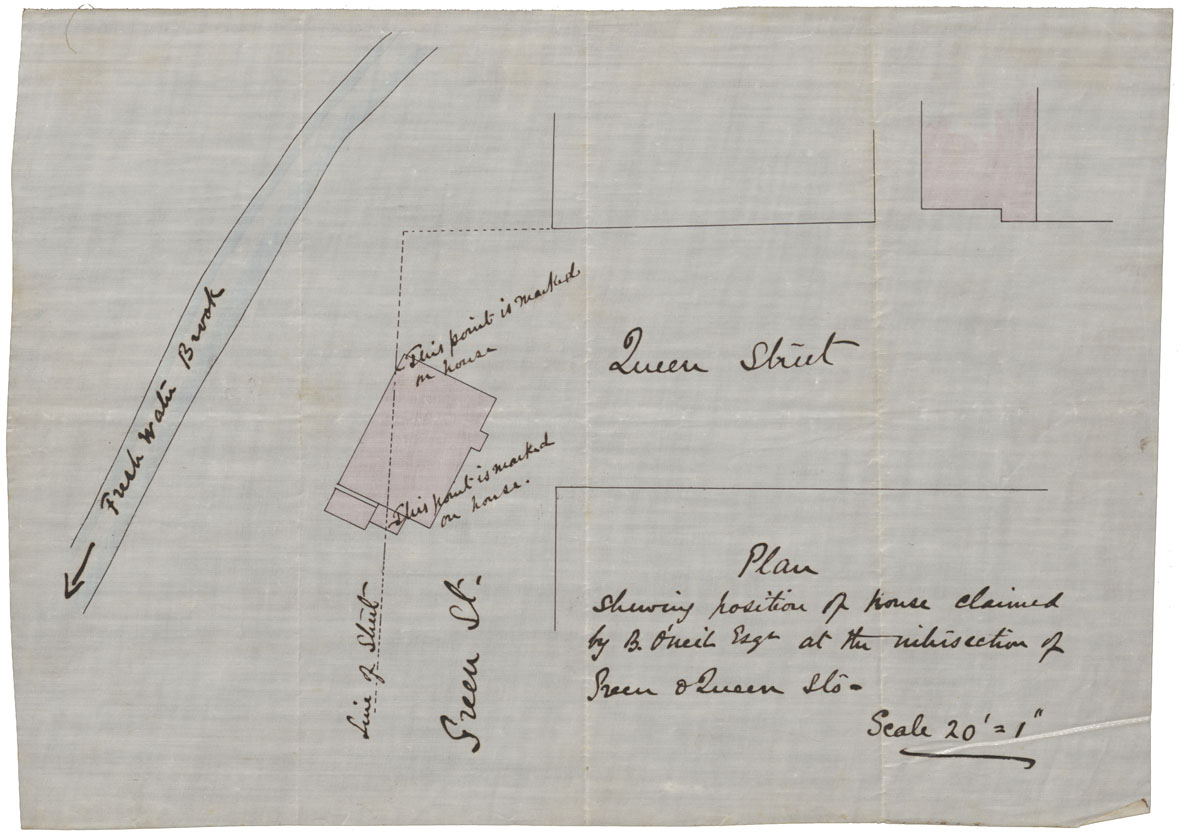 Fresh Water Brook
This point is marked
on house
Queen Street
This point is marked
on house.
Line of Street
Green St.
Plan
Shewing position of house claimed
by B. O'Neil Esqr at the intersection of
Green & Queen Sts-
Scale 20' = 1"